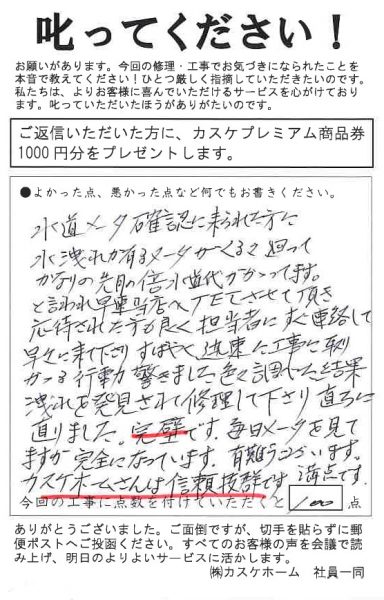 叱ってください！
お願いがあります。今回の修理・工事でお気づきになられたことを
本音で教えてください！ひとつ厳しく指摘していただきたいのです。
私たちは、よりお客様に喜んでいただけるサービスを心がけており
ます。叱っていただいたほうがありがたいのです。
ご返信いただいた方に、カスケプレミアム商品券
1000円分をプレゼントします。
●よかった点、悪かった点など何でもお書きください。
水道メータ確認に来られた方に
水洩れが有るメータがくるくる廻って
かなりの先月の倍水道代かかってます。
と言われ早速当店へTELさせて頂き
応待された方も良く担当者にすぐ連絡して
早々に来て下さりすばやく迅速に工事に取り
かかる行動力驚きました色々調べた結果
洩れを発見されて修理して下さり直ちに
直りました。完璧です。毎日メータを見て
ますが完全になっています。有難うございます。
カスケホームさんは信頼抜群です 満点です。
今回の工事に点数を付けていただくと 100 点
ありがとうございました。ご面倒ですが、切手を貼らずに郵
便ポストへご投函ください。すべてのお客様の声を会議で読
み上げ、明日のよりよいサービスに活かします。
㈱カスケホーム 社員一同